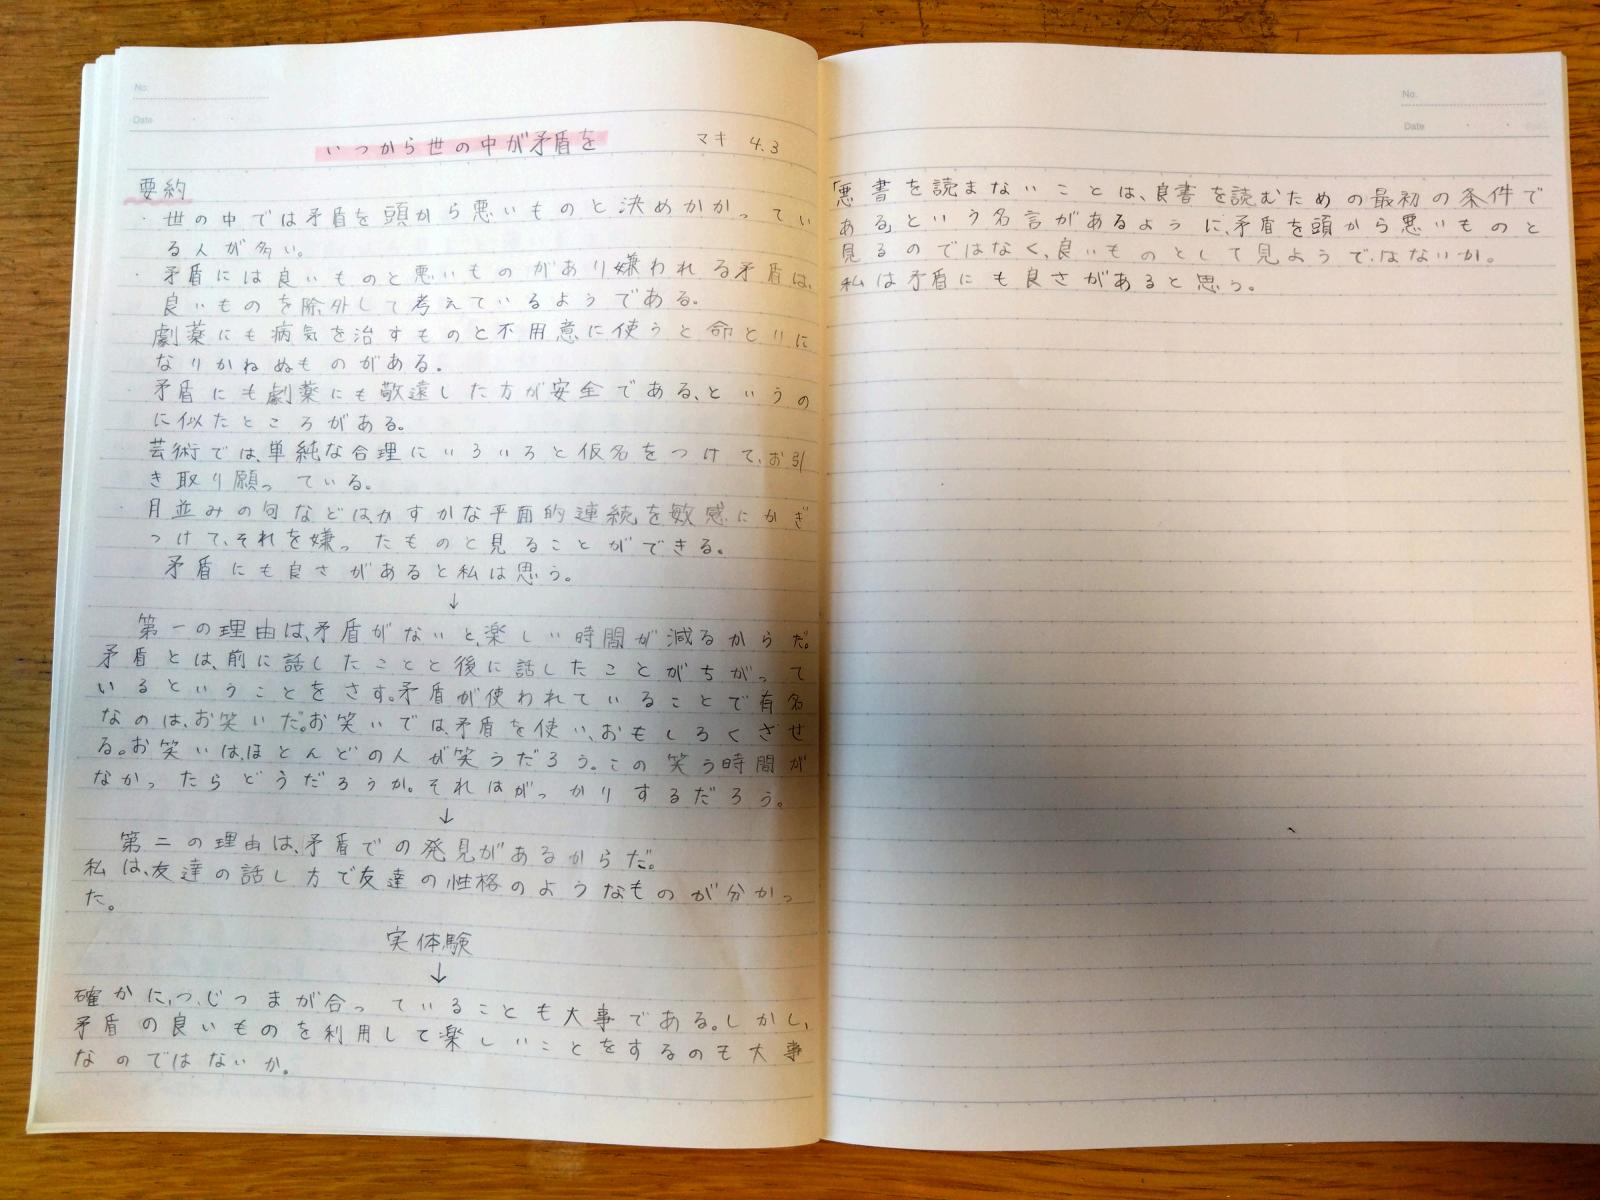 No.
Date
いつから世の中が矛盾を マキ 4.3
要約
・世の中では矛盾を頭から悪いものと決めかかってい
る人が多い。
・矛盾には良いものと悪いものがあり嫌われる矛盾は、
良いものを除外して考えているようである。
・劇薬にも病気を治すものと不用意に使うと命とりに
なりかねぬものがある。
・矛盾にも劇薬にも敬遠した方が安全である、というの
に似たところがある。
・芸術では、単純な合理にいろいろと仮名をつけて、お引
き取り願っている。
・月並みの句などは、かすかな平面的連続を敏感にかぎ
つけて、それを嫌ったものと見ることができる。
矛盾にも良さがあると私は思う。
↓
第一の理由は、矛盾がないと、楽しい時間が減るからだ。
矛盾とは、前に話したことと後に話したことがちがって
いるということをさす。矛盾が使われていることで有名
なのは、お笑いだ。お笑いでは、矛盾を使い、おもしろくさせ
る。お笑いは、ほとんどの人が笑うだろう。この笑う時間が
なかったらどうだろうか。それはがっかりするだろう。
↓
第二の理由は、矛盾での発見があるからだ。
私は、友達の話し方で友達の性格のようなものが分かっ
た。
実体験
↓
確かに、つじつまが合っていることも大事である。しかし、
矛盾の良いものを利用して楽しいことをするのも大事
なのではないか。
No.
Date
「悪書を読まないことは、良書を読むための最初の条件で
ある」という名言があるように、矛盾を頭から悪いものと
見るのではなく、良いものとして見ようではないか。
私は矛盾にも良さがあると思う。